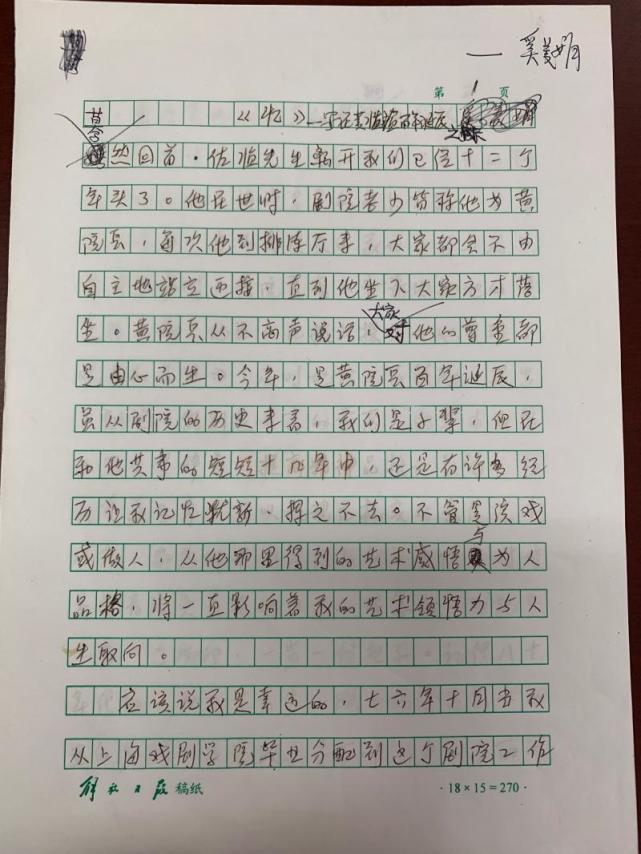 — 奚美娟
第 1 页
《忆》—写在黄佐临百年诞辰之际
蓦然回首,佐临先生离开我们已经十二个
年头了。他在世时,剧院老少皆称他为黄
院长,每次他到排练厅来,大家都会不由
自主地站立迎接,直到他坐下大家方才落
坐。黄院长从不高声说话,大家对他的尊重都
是由心而生。今年,是黄院长百年诞辰,
虽从剧院的历史来看,我们是小辈,但在
和他共事的短短十几年中,还是有许多经
历让我记忆犹新,挥之不去。不管是演戏
或做人,从他那里得到的艺术感悟与为人
品格,将一直影响着我的艺术领悟力与人
生取向。
应该说我是幸运的,七六年十月当我
从上海戏剧学院毕业分配到这个剧院工作
解放日报 稿纸
· 18 × 15 = 270 ·